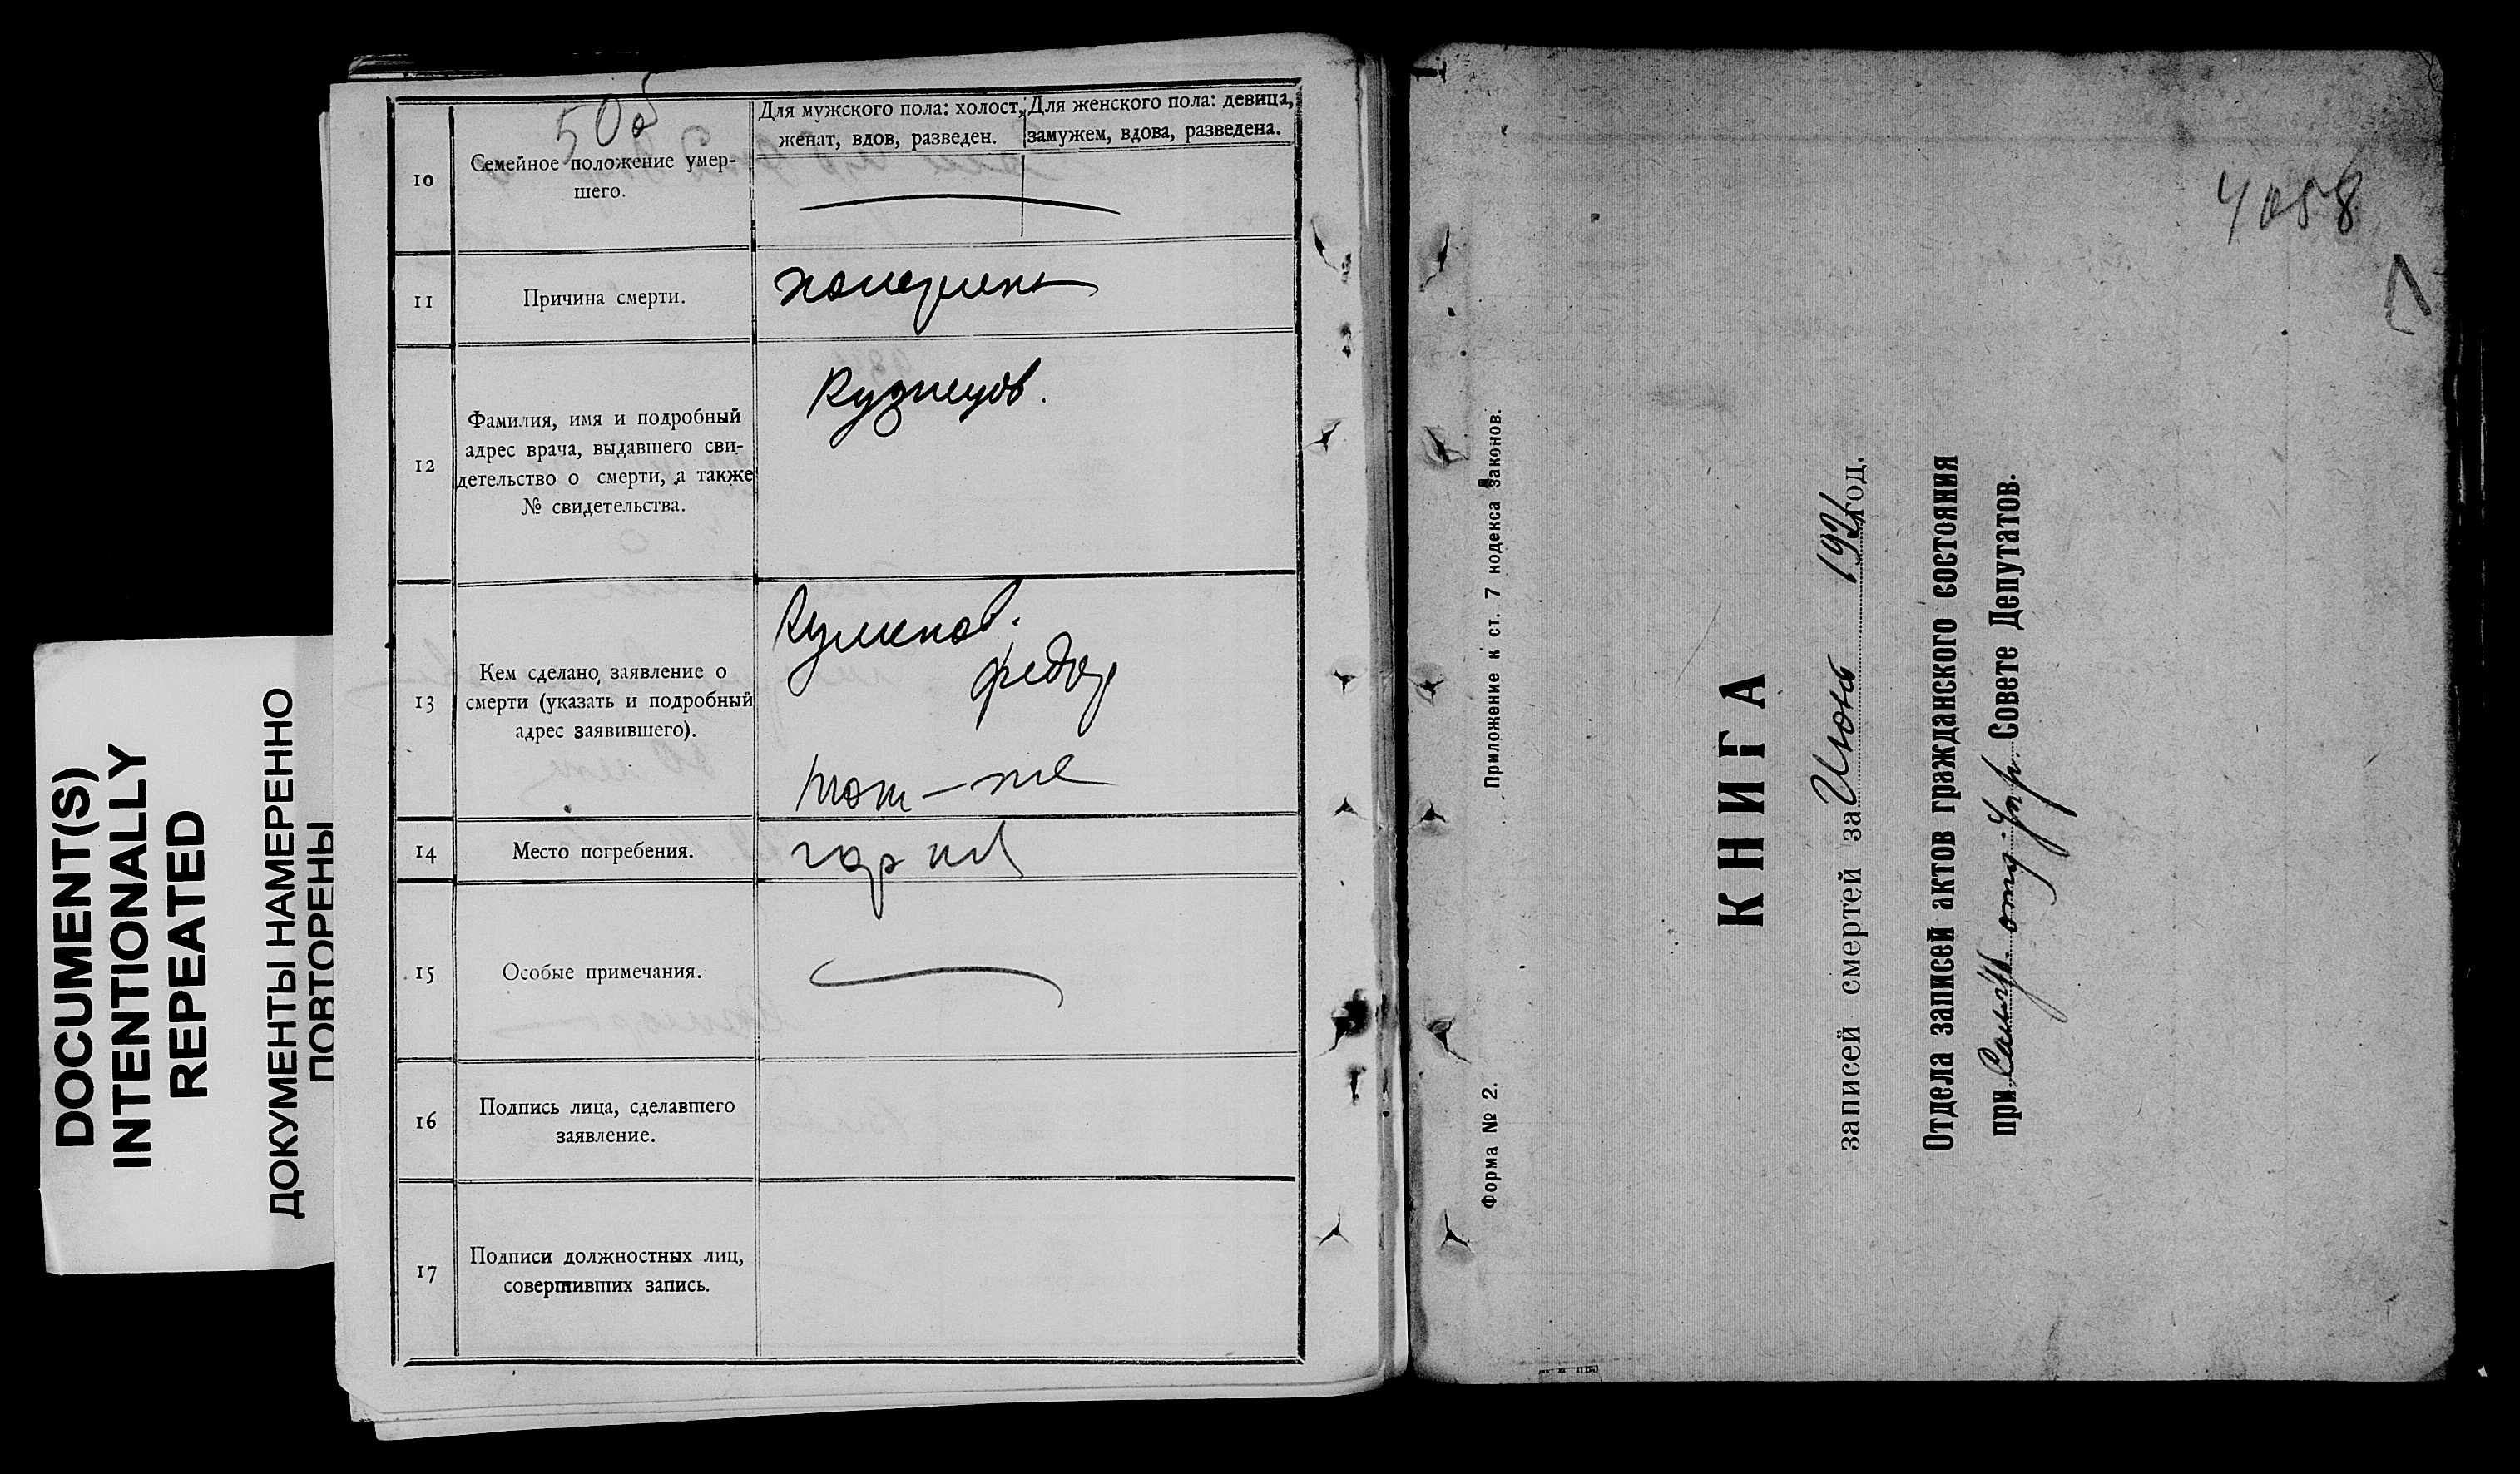 DOCUMENT(S)
INTENTIONALLY
REPEATED
ДОКУМЕНТЫ НАМЕРЕННО
ПОВТОРЕНЫ
Для мужского пола: холост,
женат, вдов, разведен.
Для женского пола: девица,
замужем, вдова, разведена.
10
Семейное положение умер-
шего.
11
Причина смерти.
12
Фамилия, имя и подробный
адрес врача, выдавшего сви-
детельство о смерти, а также
№ свидетельства.
Кузнецов.
13
Кем сделано заявление о
смерти (указать и подробный
адрес заявившего).
Куликов.
Федор
тот-же
14
Место погребения.
гор кл
15
Особые примечания.
16
Подпись лица, сделавшего
заявление.
17
Подписи должностных лиц,
совершивших запись.
4058
Форма № 2.
Приложение к ст. 7 кодекса законов.
КНИГА
записей смертей за Июнь 1921 год.
Отдела записей актов гражданского состояния
при отд. Упр. Совете Депутатов.